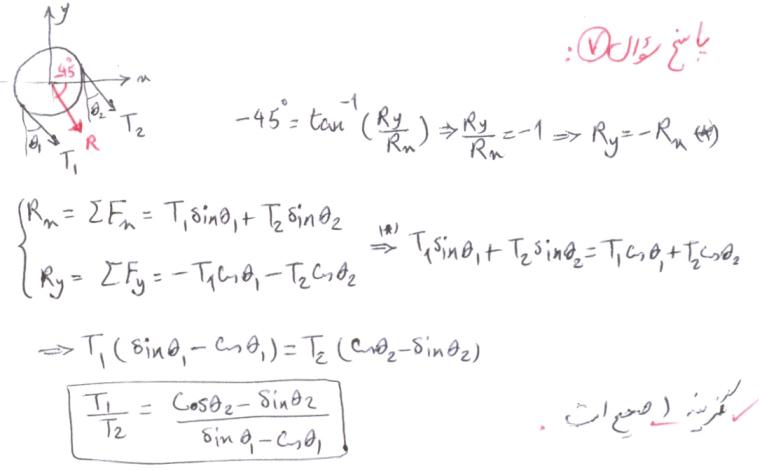 پاسخ سؤال ⑦:
y
x
45°
θ₁
θ₂
T₁
T₂
R
-45° = tan⁻¹(Ry/Rx) ⇒ Ry/Rx = -1 ⇒ Ry = -Rx (*)
Rx = ΣFx = T₁ sinθ₁ + T₂ sinθ₂
Ry = ΣFy = -T₁ cosθ₁ - T₂ cosθ₂
(*)⇒ T₁ sinθ₁ + T₂ sinθ₂ = T₁ cosθ₁ + T₂ cosθ₂
⇒ T₁ (sinθ₁ - cosθ₁) = T₂ (cosθ₂ - sinθ₂)
T₁/T₂ = (cosθ₂ - sinθ₂)/(sinθ₁ - cosθ₁)
گزینه ۱ صحیح است.